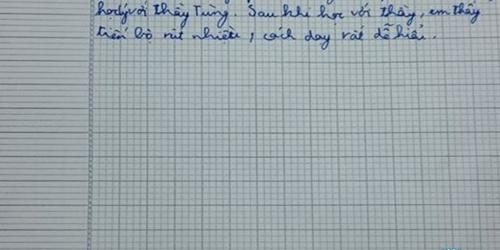 học với thầy Tùng. Sau khi học với thầy, em thấy
tiến bộ rất nhiều, cách dạy rất dễ hiểu.